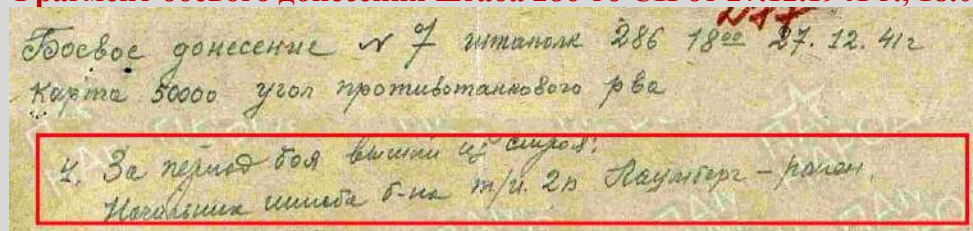 № 17
Боевое донесение № 7 штаполк 286 18⁰⁰ 27.12.41г
Карта 50000 угол противотанкового рва
4. За период боя вышли из строя:
Начальник штаба б-на т/и. 2р Лаумберг – ранен.